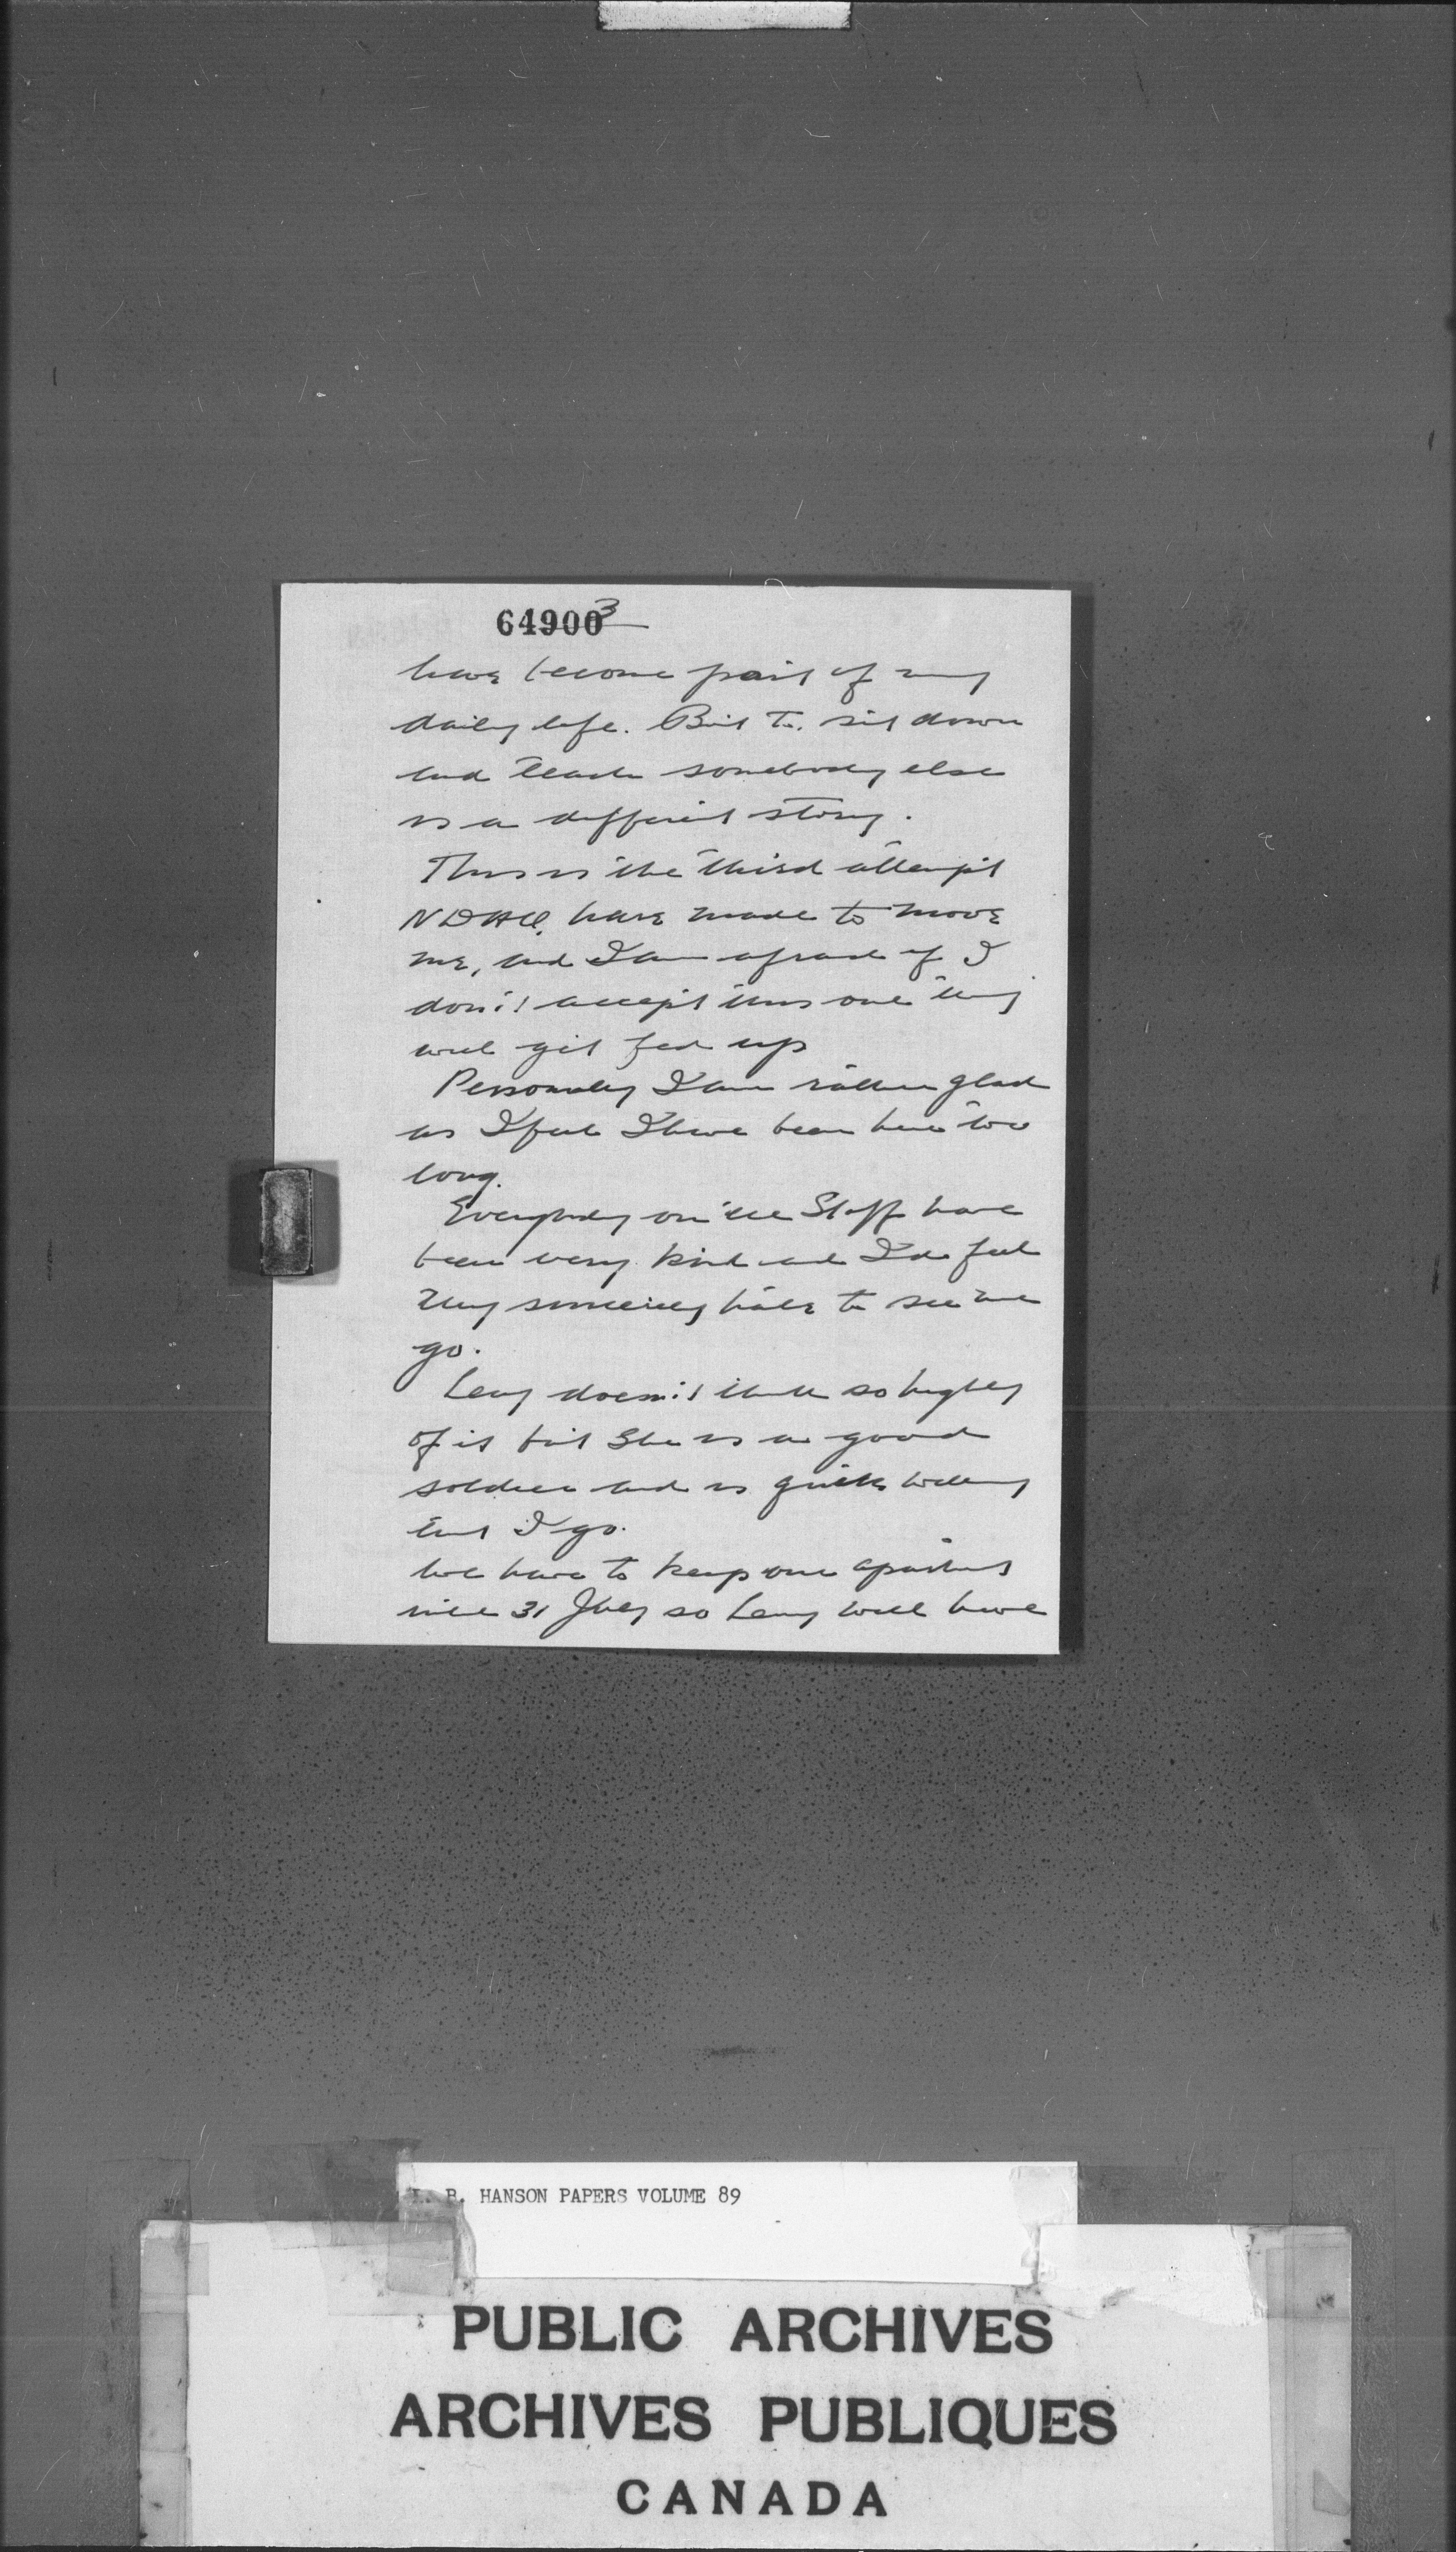 64900
3
have become part of my
daily life. But to sit down
and teach somebody else
is a different story.
This is the third attempt
NDHQ. have made to move
me, and I am afraid if I
don't accept this one they
will get fed up
Personally I am rather glad
as I feel I have been here too
long.
Everybody on the Staff have
been very kind and I do feel
they sincerely hate to see me
go.
doesn't think so highly
of it but She is a good
soldier and is quite willing
that I go.
We have to keep our apartment
until 31 July so will have
L. B. HANSON PAPERS VOLUME 89
PUBLIC ARCHIVES
ARCHIVES PUBLIQUES
CANADA